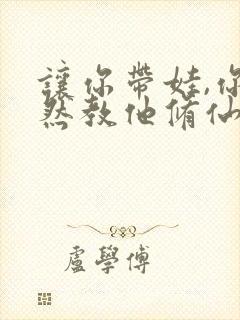 讓你帶娃,你
然教他脩仙
盧學傅